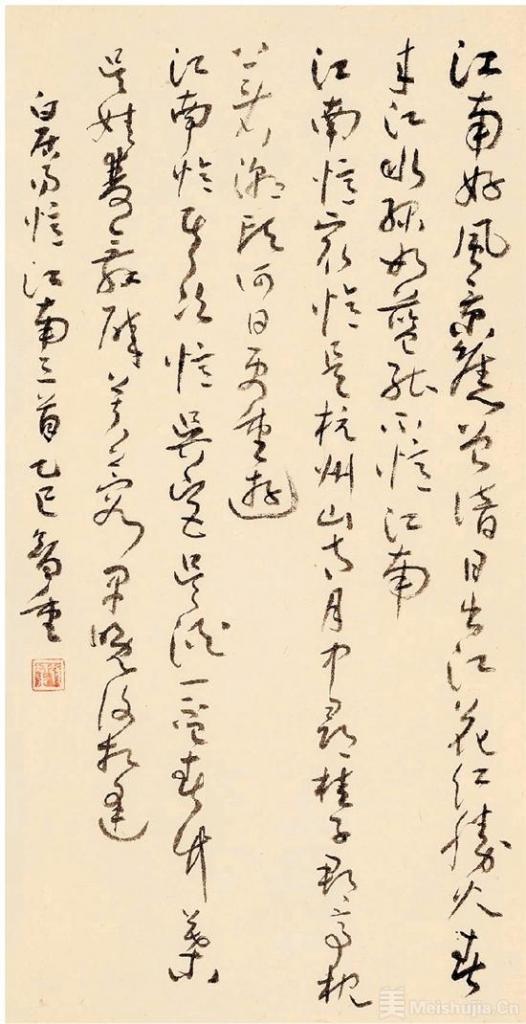 江南好風景舊曾諳日出江花红勝火春
来江水緑如藍能不憶江南
江南憶最憶是杭州山寺月中尋桂子郡亭枕
上看潮頭何日更重遊
江南憶其次憶吴宫吴酒一盃春竹葉
吴娃雙舞醉芙蓉早晚復相逢
白居易憶江南三首乙巳智重
美 Meishujia.Cn